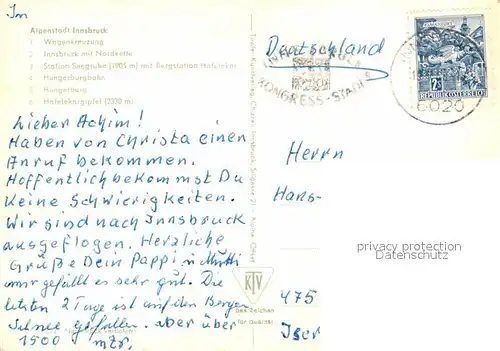 Im
Alpenstadt Innsbruck
1 Wagenkreuzung
2 Innsbruck mit Nordkette
3 Station Seegrube (1905 m) mit Bergstation Hafelekar
4 Hungerburgbahn
5 Hungerburg
6 Hafelekargipfel (2330 m)
Deutschland
KONGRESS-STADT
6020
REPUBLIK ÖSTERREICH
Lieber Achim!
Haben von Christa einen
Anruf bekommen.
Hoffentlich bekommst Du
keine Schwierigkeiten.
Wir sind nach Innsbruck
ausgeflogen. Herzliche
Grüße Dein Pappi u Mutti
mir gefällt es sehr gut. Die
letzten 2 Tage ist auf den Bergen
Schnee gefallen. aber über
1500 mtr.
Herrn
Hans-
475
Iser
KTV
Das Zeichen
für Qualität
privacy protection
Datenschutz